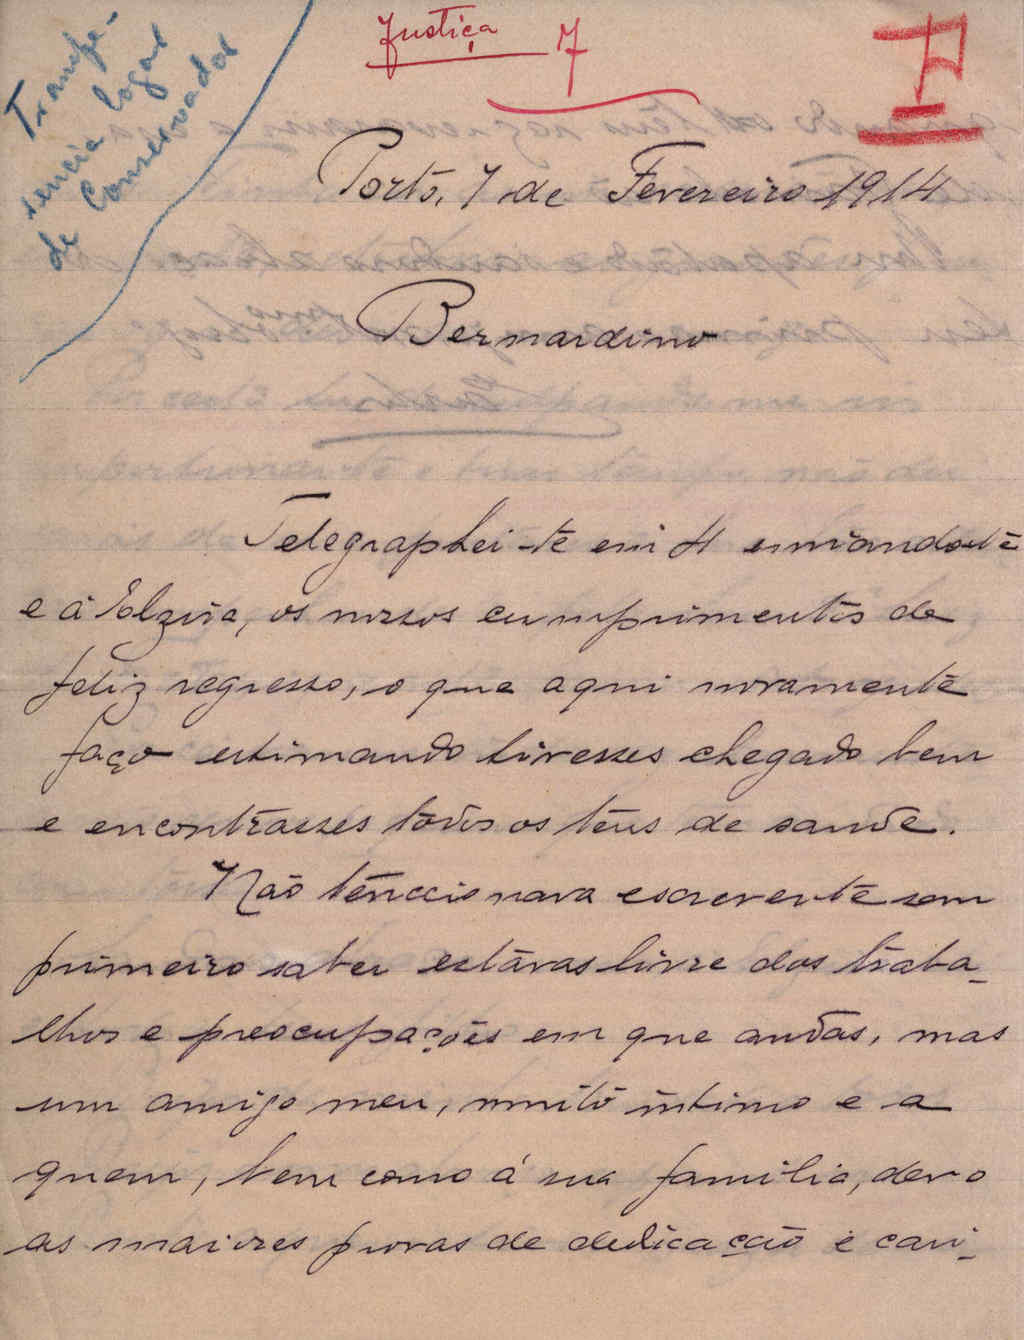 Transfe-
rencia logar
de Conservador
Justiça 7
Porto, 7 de Fevereiro 1914
Bernardino
Telegraphei-te em 4 enviando-te
e á Elzira, os nossos cumprimentos de
feliz regresso, o que aqui novamente
faço estimando tivesses chegado bem
e encontrasses todos os teus de saude.
Não tenccionava escrever-te sem
primeiro saber estavas livre dos traba-
lhos e preocupações em que andas, mas
um amigo meu, muito intimo e a
quem, bem como á sua familia, devo
as maiores provas de dedicação e cari-